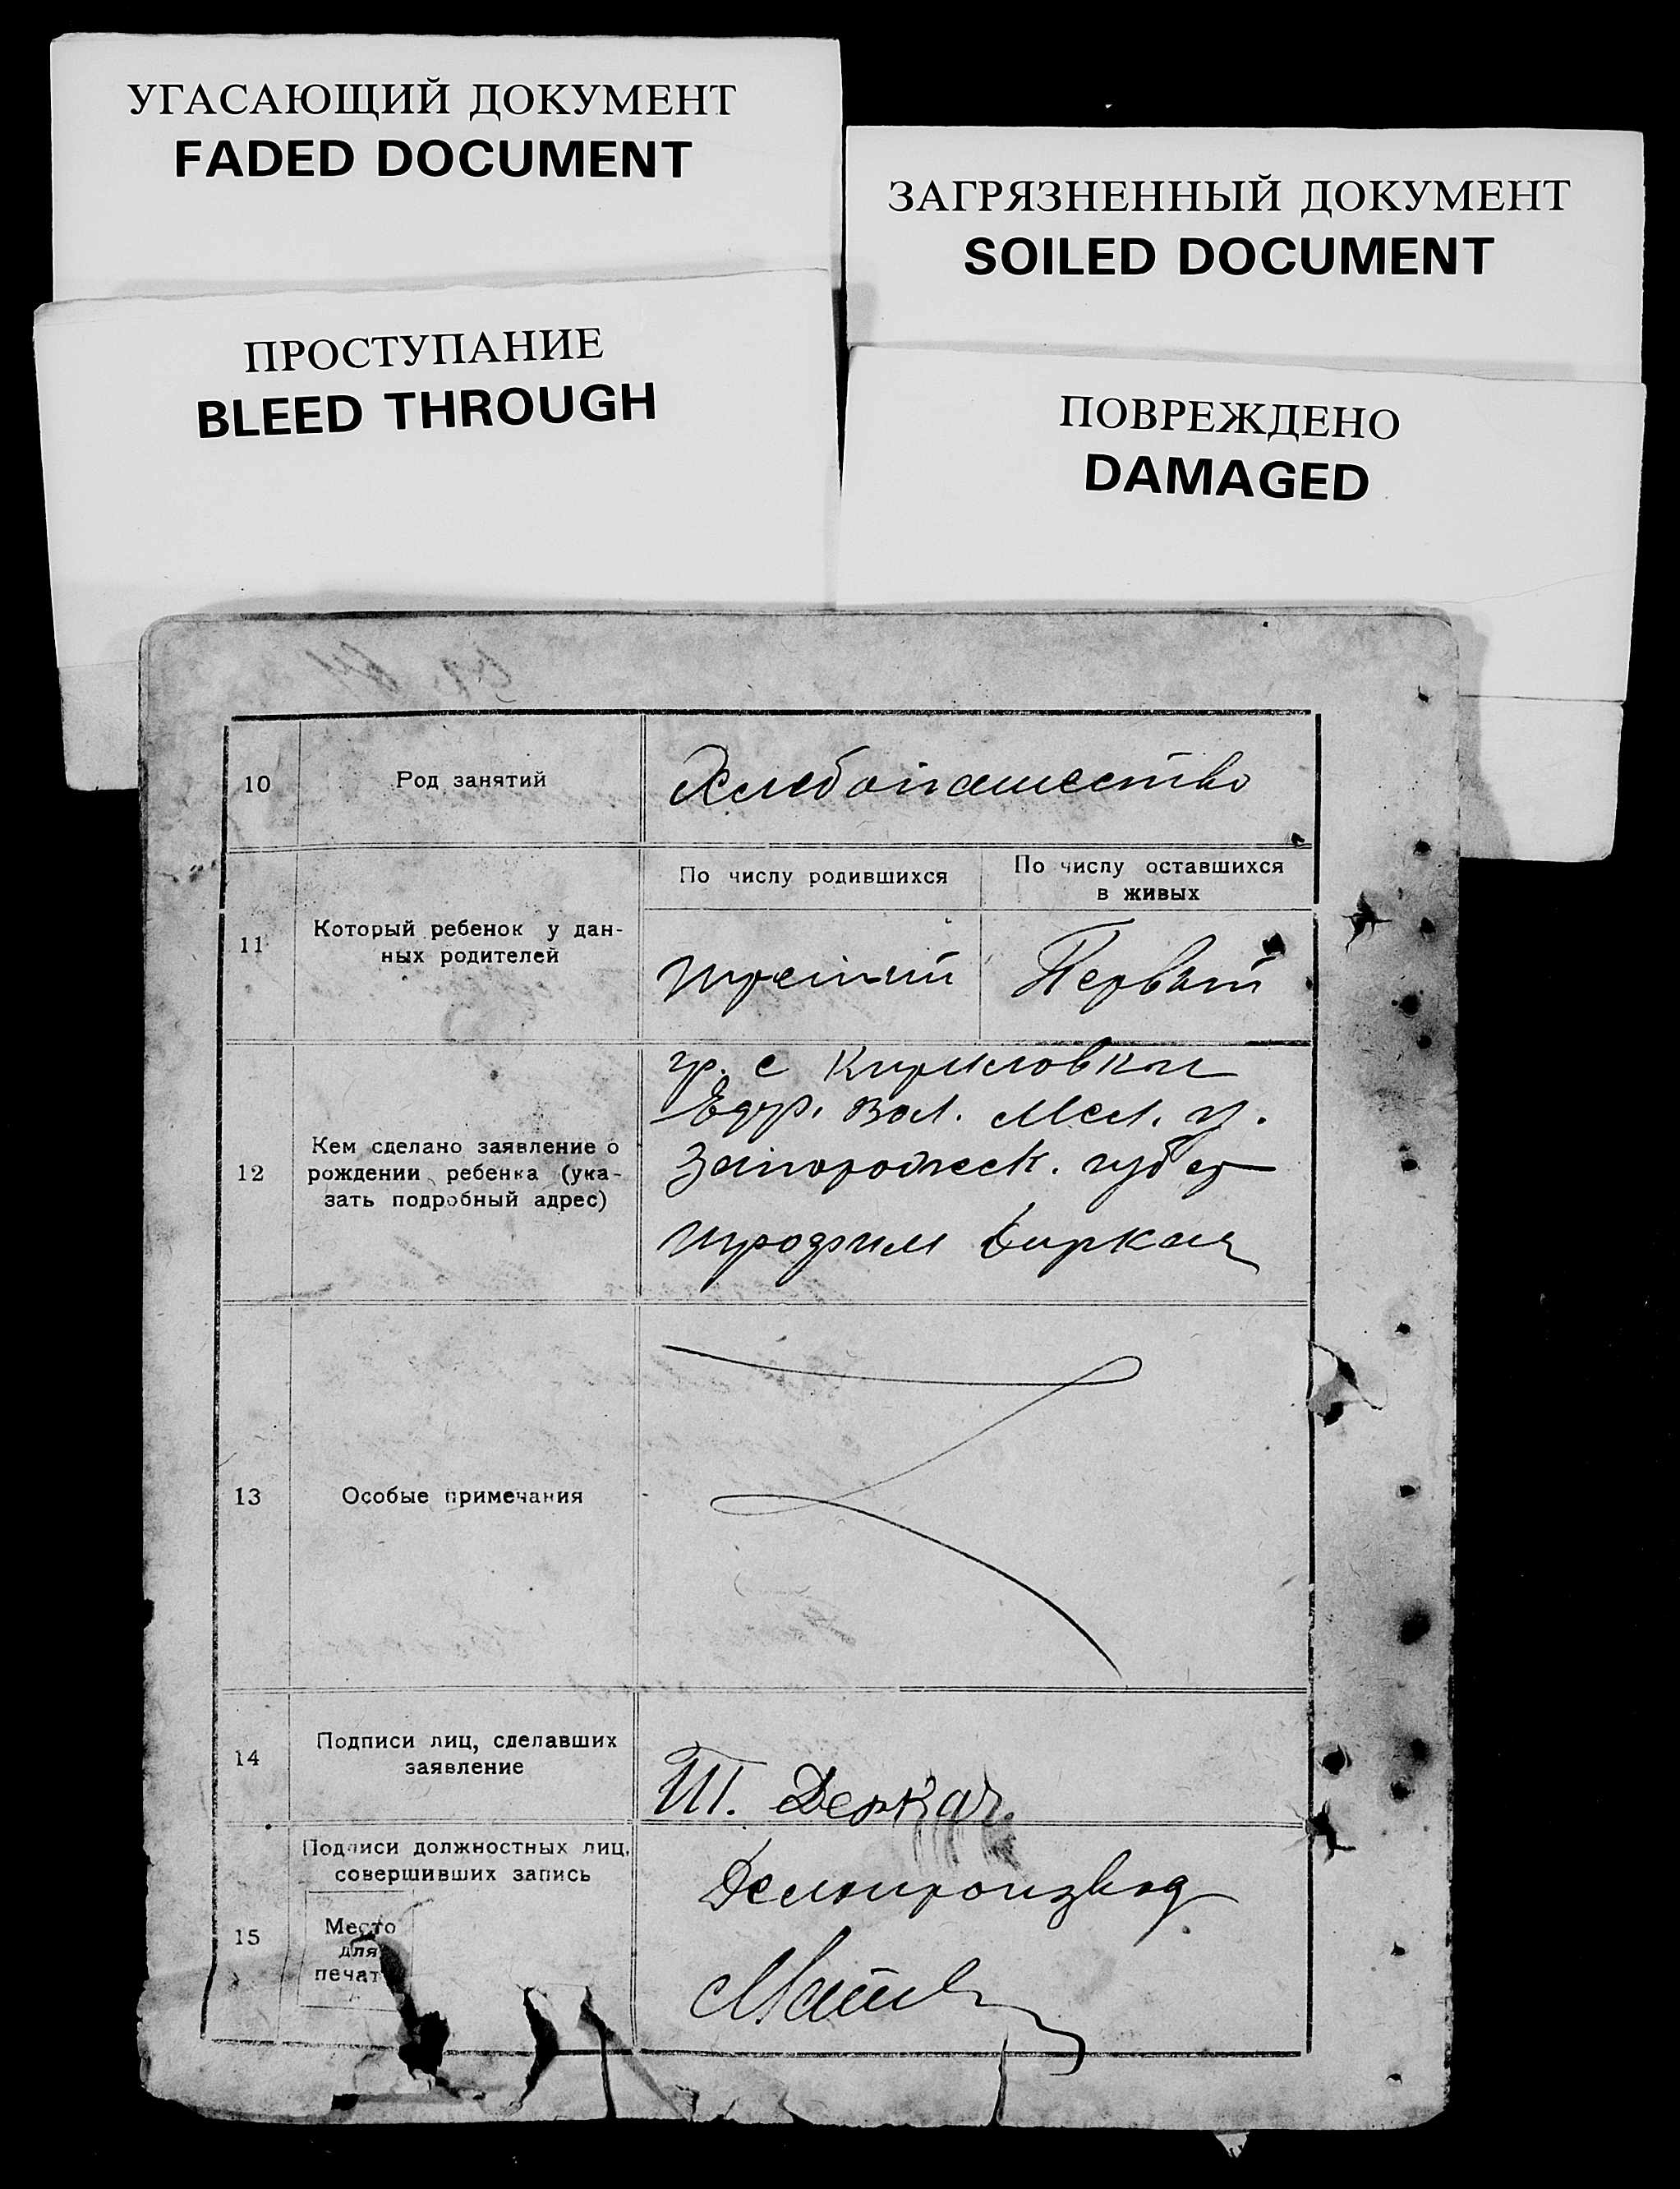 УГАСАЮЩИЙ ДОКУМЕНТ
FADED DOCUMENT
ЗАГРЯЗНЕННЫЙ ДОКУМЕНТ
SOILED DOCUMENT
ПРОСТУПАНИЕ
BLEED THROUGH
ПОВРЕЖДЕНО
DAMAGED
10
Род занятий
Хлебопашество
11
Который ребенок у дан-
ных родителей
По числу родившихся
По числу оставшихся
в живых
третий
Первый
12
Кем сделано заявление о
рождении ребенка (ука-
зать подробный адрес)
гр. с Кириловки
вол. Мел. у.
Запорожск. губер
Трофим Диркач
13
Особые примечания
14
Подписи лиц, сделавших
заявление
Т. Деркач
15
Подписи должностных лиц,
совершивших запись
Место
для
печат
Делопроизвод